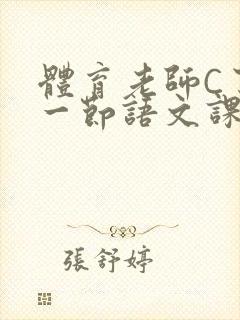 體育老師C
一節語文課
張舒婷